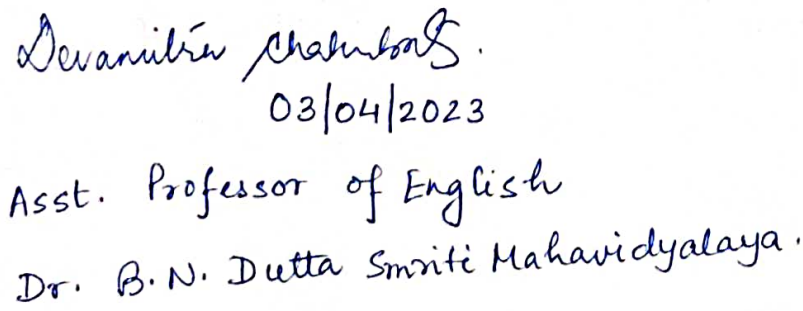 Devamitra Chakraborty.
03/04/2023
Asst. Professor of English
Dr. B.N. Dutta Smriti Mahavidyalaya.